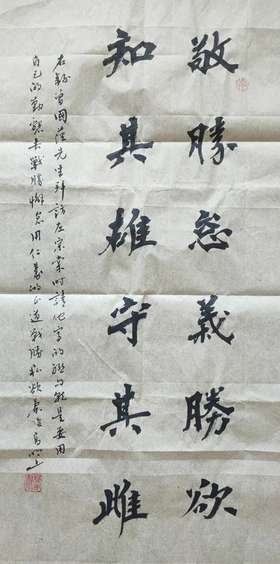 敬勝怠義勝欲
知其雄守其雌
右録曾國藩先生拜訪左宗棠时請他寫的聯句就是要用
自己的勤奮去戰勝懶怠用仁義的正道戰勝私欲